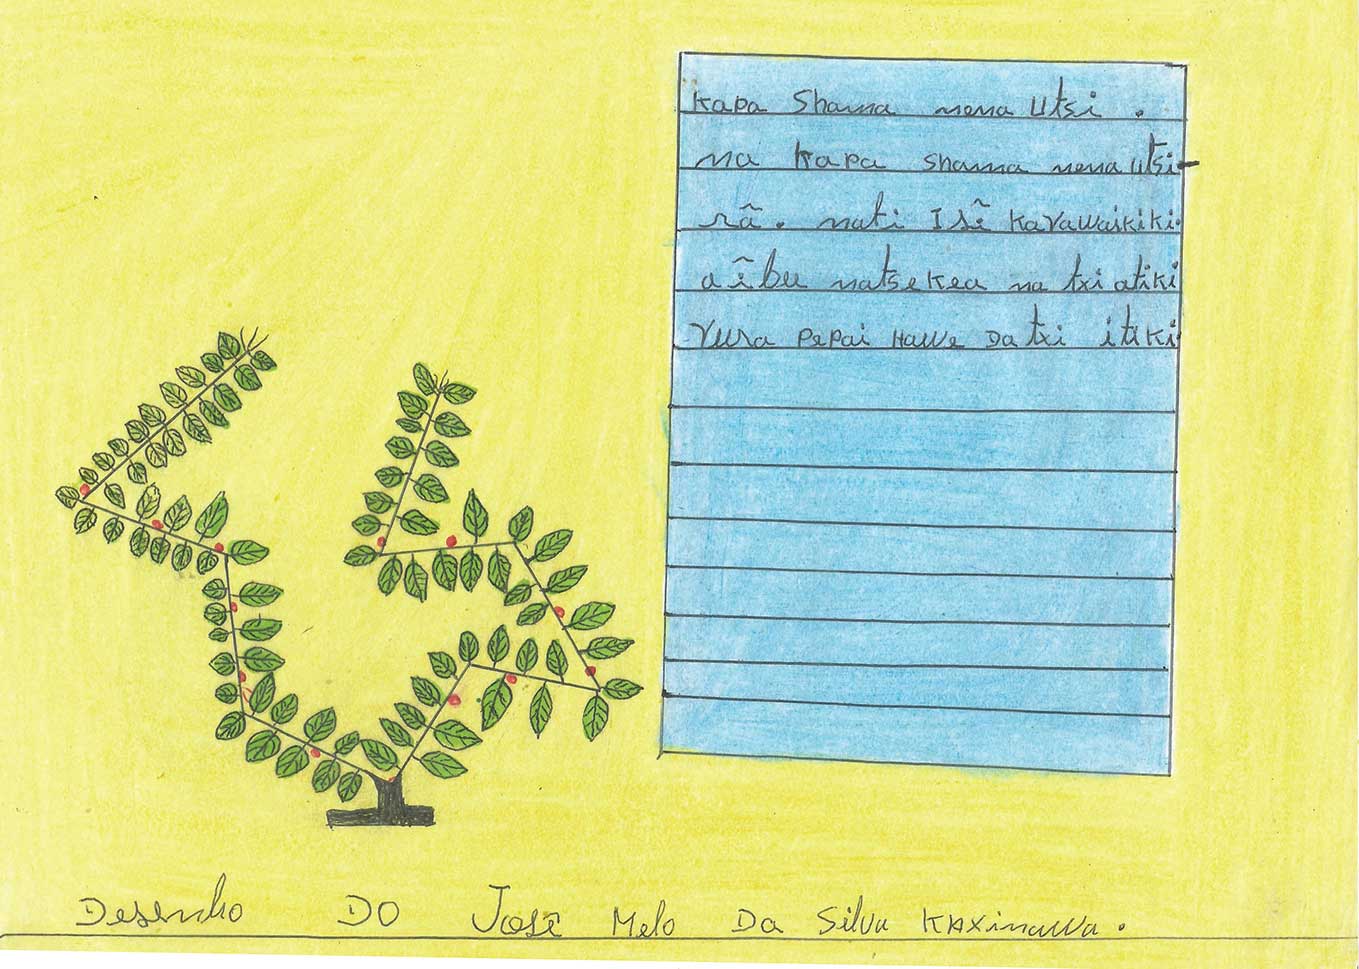 Kapa Shama nena Utsi .
na Kapa shama nena utsi-
rã. nati Isĩ Kayawaikiki.
aĩbu natsekea na txi atiki
Yura pepai Hawe Da txi itiki.
Desenho DO José Melo Da Silva KAXinawa.